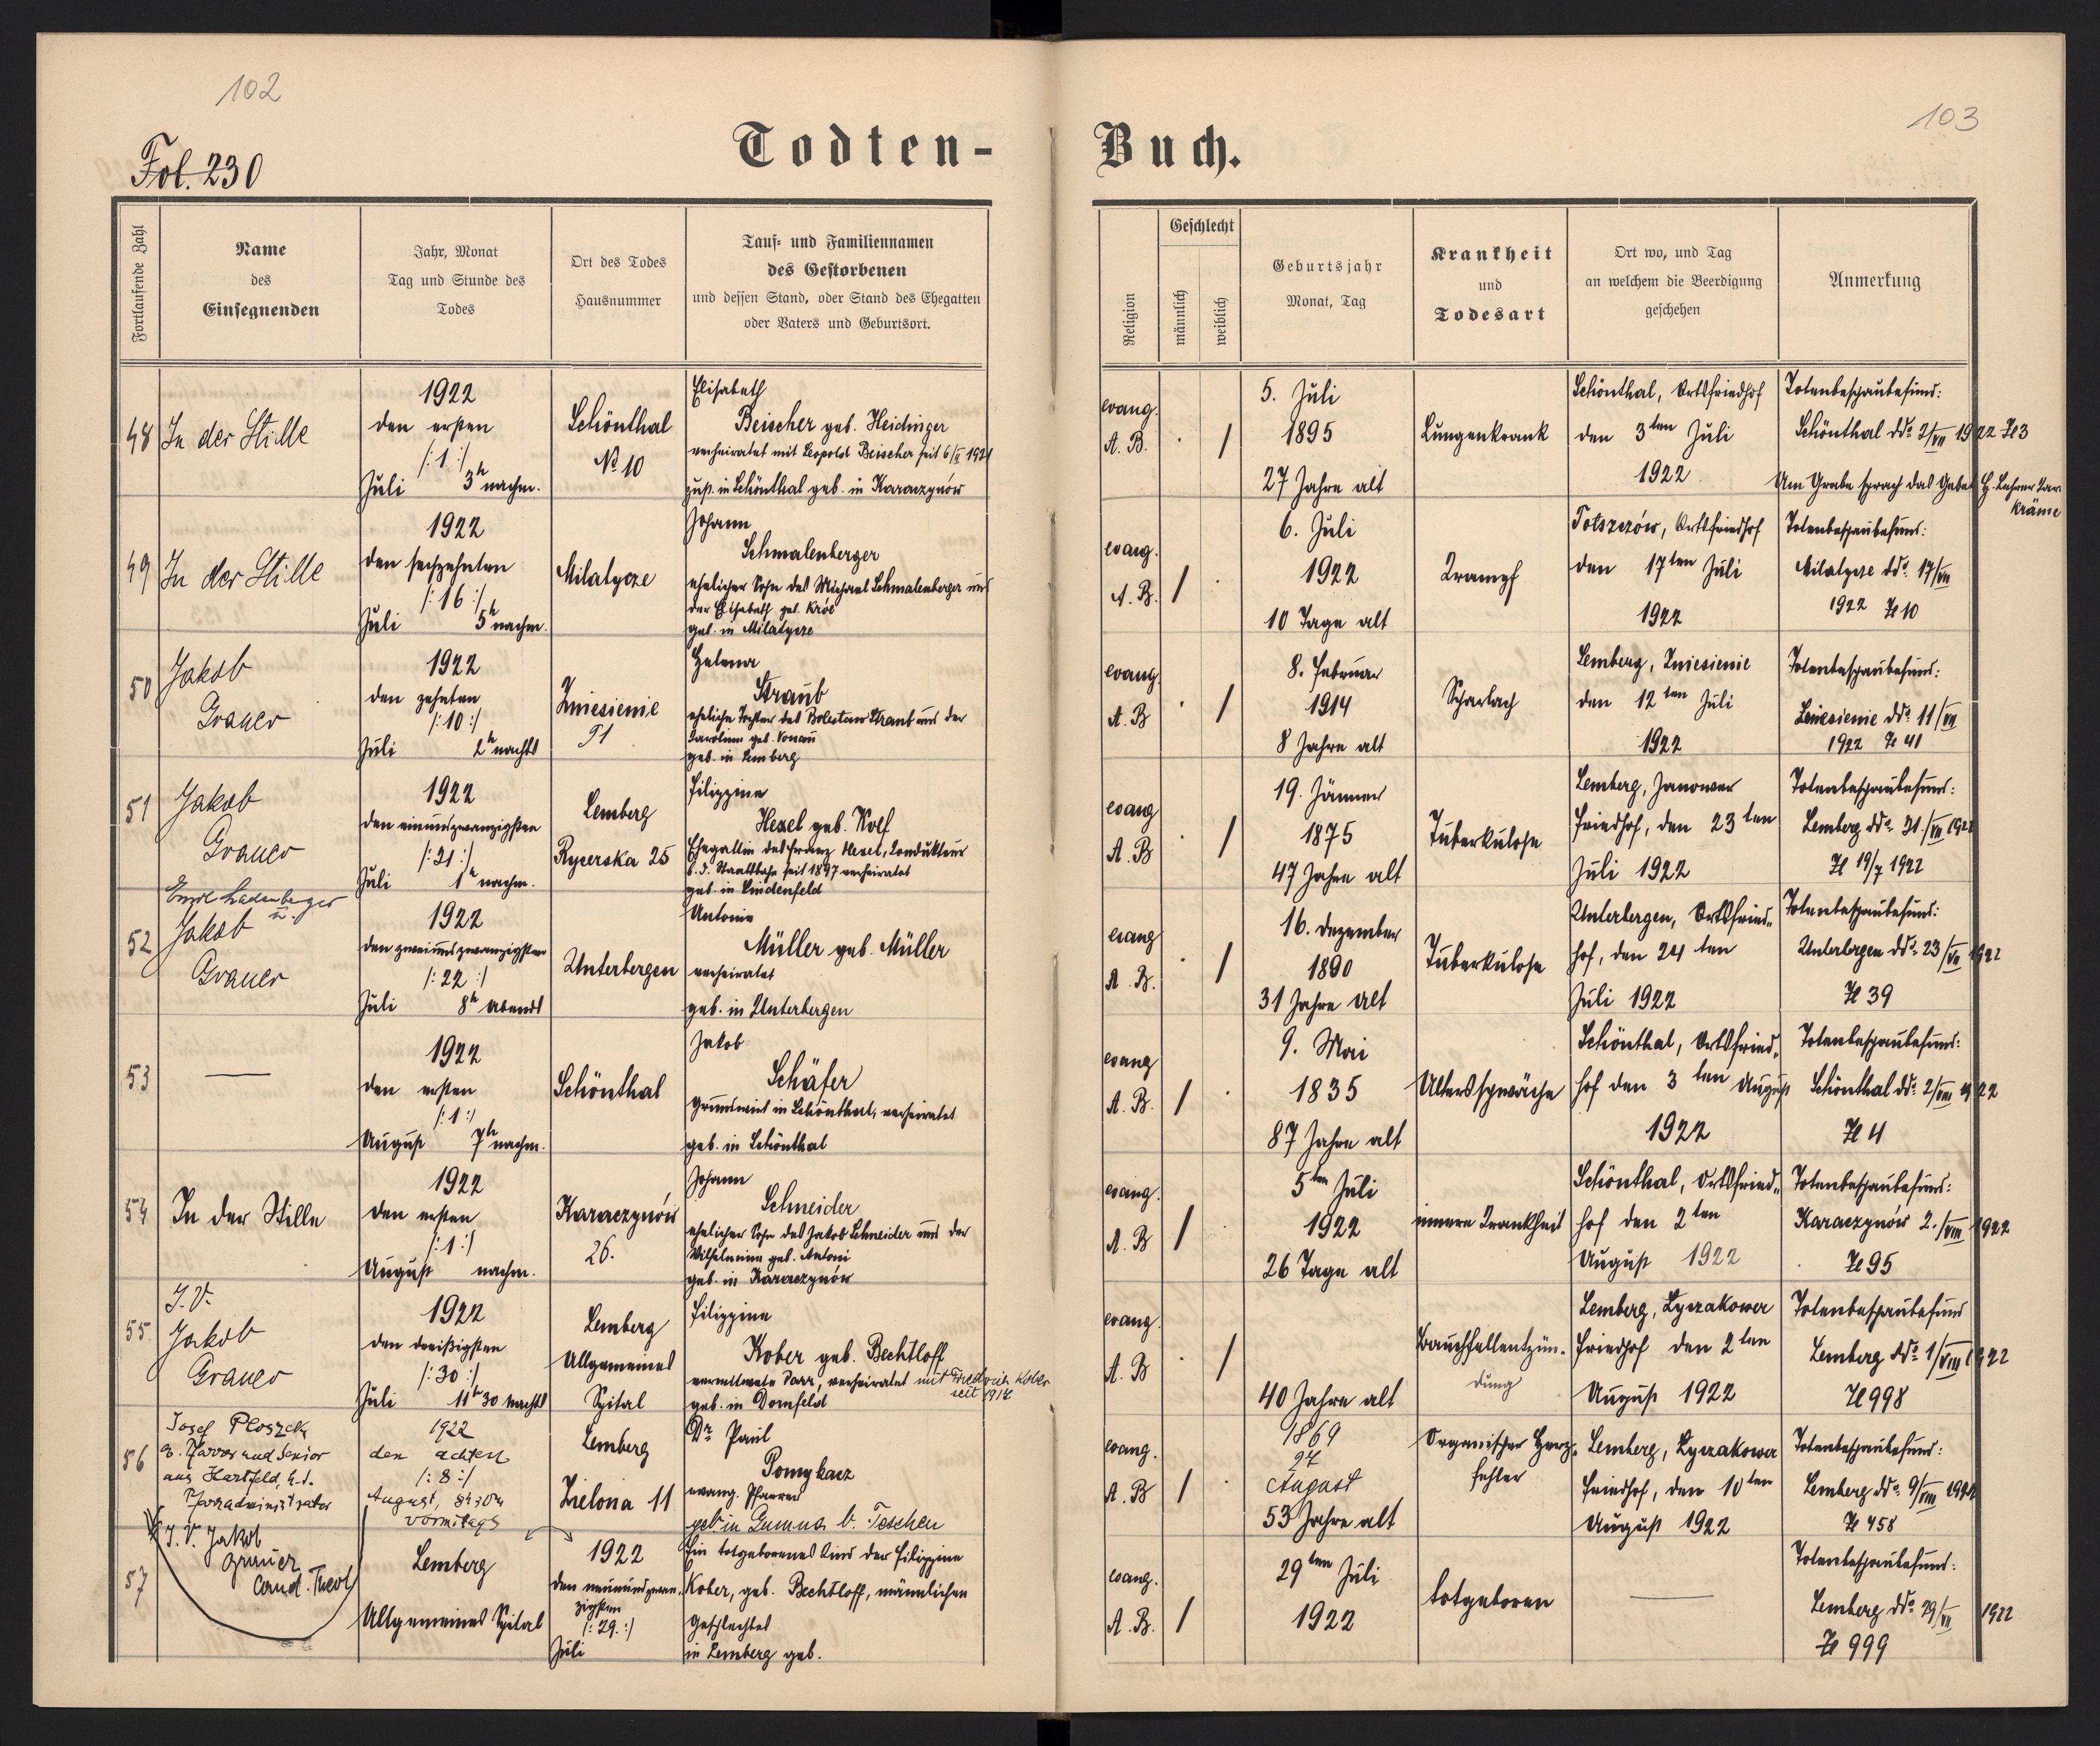 102
103
Fol. 230
Todten-Buch.
Fortlaufende Zahl
Name
des
Einsegnenden
Jahr, Monat
Tag und Stunde des
Todes
Ort des Todes
Hausnummer
Tauf- und Familiennamen
des Gestorbenen
und dessen Stand, oder Stand des Ehegatten
oder Vaters und Geburtsort.
Religion
Geschlecht
männlich
weiblich
Geburtsjahr
Monat, Tag
Krankheit
und
Todesart
Ort wo, und Tag
an welchem die Beerdigung
geschehen
Anmerkung
48
In der Stille
1922
den ersten
/: 1 :/
Juli 3h nachm.
Schönthal
No 10
Elisabeth
Beischer geb. Heidinger
verheiratet mit Leopold Beischer seit 6/II 1921
zust. in Schönthal geb. in Karaczynów
evang.
A. B.
/
5. Juli
1895
27 Jahre alt
Lungenkrank
Schönthal, Ortsfriedhof
den 3ten Juli
1922
Totenbeschaubefund:
Schönthal ddo 2/VII 1922 Zl 3
Am Grabe sprach das Gebet H. Lehrer
49
In der Stille
1922
den sechzehnten
/: 16 :/
Juli 5h nachm.
Milatycze
Johann
Schmalenberger
ehelicher Sohn des Michael Schmalenberger und
der Elisabeth geb.
geb. in Milatycze
evang.
A. B.
/
6. Juli
1922
10 Tage alt
Krampf
Tolszczów, Ortsfriedhof
den 17ten Juli
1922
Totenbeschaubefund:
Milatycze ddo 17/VII
1922 Zl 10
50
Jakob
Grauer
1922
den zehnten
/: 10 :/
Juli 2h nachts
Zniesienie
91
Helena
Straub
eheliche Tochter des Boleslaw Straub und der
Karoline geb.
geb. in Lemberg
evang.
A. B
/
8. Februar
1914
8 Jahre alt
Scharlach
Lemberg, Zniesienie
den 12ten Juli
1922
Totenbeschaubefund:
Zniesienie ddo 11/VII
1922 Zl 41
51
Jakob
Grauer
1922
den einundzwanzigsten
/: 21 :/
Juli 1h nachm.
Lemberg
Rycerska 25
Filippine
Hexel geb. Wolf
Ehegattin des Franz Hexel, Kondukteur
d. Staatsbahn seit 1897 verheiratet
geb. in Lindenfeld
evang
A. B
/
19. Jänner
1875
47 Jahre alt
Tuberkulose
Lemberg, Janower
Friedhof, den 23ten
Juli 1922
Totenbeschaubefund:
Lemberg ddo 21./VII 1922
Zl 19/7 1922
52
Emil Ladenberger
u.
Jakob
Grauer
1922
den zweiundzwanzigsten
/: 22 :/
Juli 8h abends
Unterbergen
Antonie
Müller geb. Müller
verheiratet
geb. in Unterbergen
evang
A. B.
/
16. Dezember
1890
31 Jahre alt
Tuberkulose
Unterbergen, Ortsfried-
hof, den 24ten
Juli 1922
Totenbeschaubefund:
Unterbergen ddo 23/VII 1922
Zl 39
53
1922
den ersten
/: 1 :/
August 7h nachm.
Schönthal
Jakob
Schäfer
Grundwirt in Schönthal, verheiratet
geb. in Schönthal
evang
A. B.
/
9. Mai
1835
87 Jahre alt
Altersschwäche
Schönthal, Ortsfried-
hof den 3ten August
1922
Totenbeschaubefund:
Schönthal ddo 2/VIII 1922
Zl 4
54
In der Stille
1922
den ersten
/: 1 :/
August nachm.
Karaczynów
26.
Johann
Schneider
ehelicher Sohn des Jakob Schneider und der
Wilhelmine geb. Antoni
geb. in Karaczynów
evang.
A. B
/
5ten Juli
1922
26 Tage alt
innere Krankheit
Schönthal, Ortsfried-
hof den 2ten
August 1922
Totenbeschaubefund:
Karaczynów 2./VIII 1922
Zl 95
55.
I. V.
Jakob
Grauer
1922
den dreißigsten
/: 30 :/
Juli 11h 30 nachts
Lemberg
Allgemeines
Spital
Filippine
Kober geb. Bechtloff
verwittwete Darr, verheiratet mit Friedrich Kober
seit 1914
geb. in Dornfeld
evang.
A. B
/
40 Jahre alt
Bauchfellentzün-
dung
Lemberg, Lyczakower
Friedhof den 2ten
August 1922
Totenbeschaubefund
Lemberg ddo 1/VIII 1922
Zl 998
56
Josef Ploszek
e. Pfarrer und Senior
aus Hartfeld, h. t.
Pfarradministrator
I. V. Jakob
Grauer
Cand. Theol
1922
den achten
/: 8 :/
August, 8h 30m
vormitags
Lemberg
Zielona 11
Dr Paul
Pomykacz
evang. Pfarrer
geb in Gumna b. Teschen
evang.
A. B
/
1869
27
August
53 Jahre alt
Organischer Herz-
fehler
Lemberg, Lyczakower
Friedhof, den 10ten
August 1922
Totenbeschaubefund:
Lemberg ddo 9/VIII 1922
Zl 458
57
Lemberg
Allgemeines Spital
1922
den neunundzwan-
zigsten
/: 29. :/
Juli
Ein totgeborenes Kind der Filippine
Kober, geb. Bechtloff, männlichen
Geschlechtes
in Lemberg geb.
evang.
A. B.
/
29ten Juli
1922
totgeboren
Totenbeschaubefund:
Lemberg ddo 29/VII 1922
Zl 999